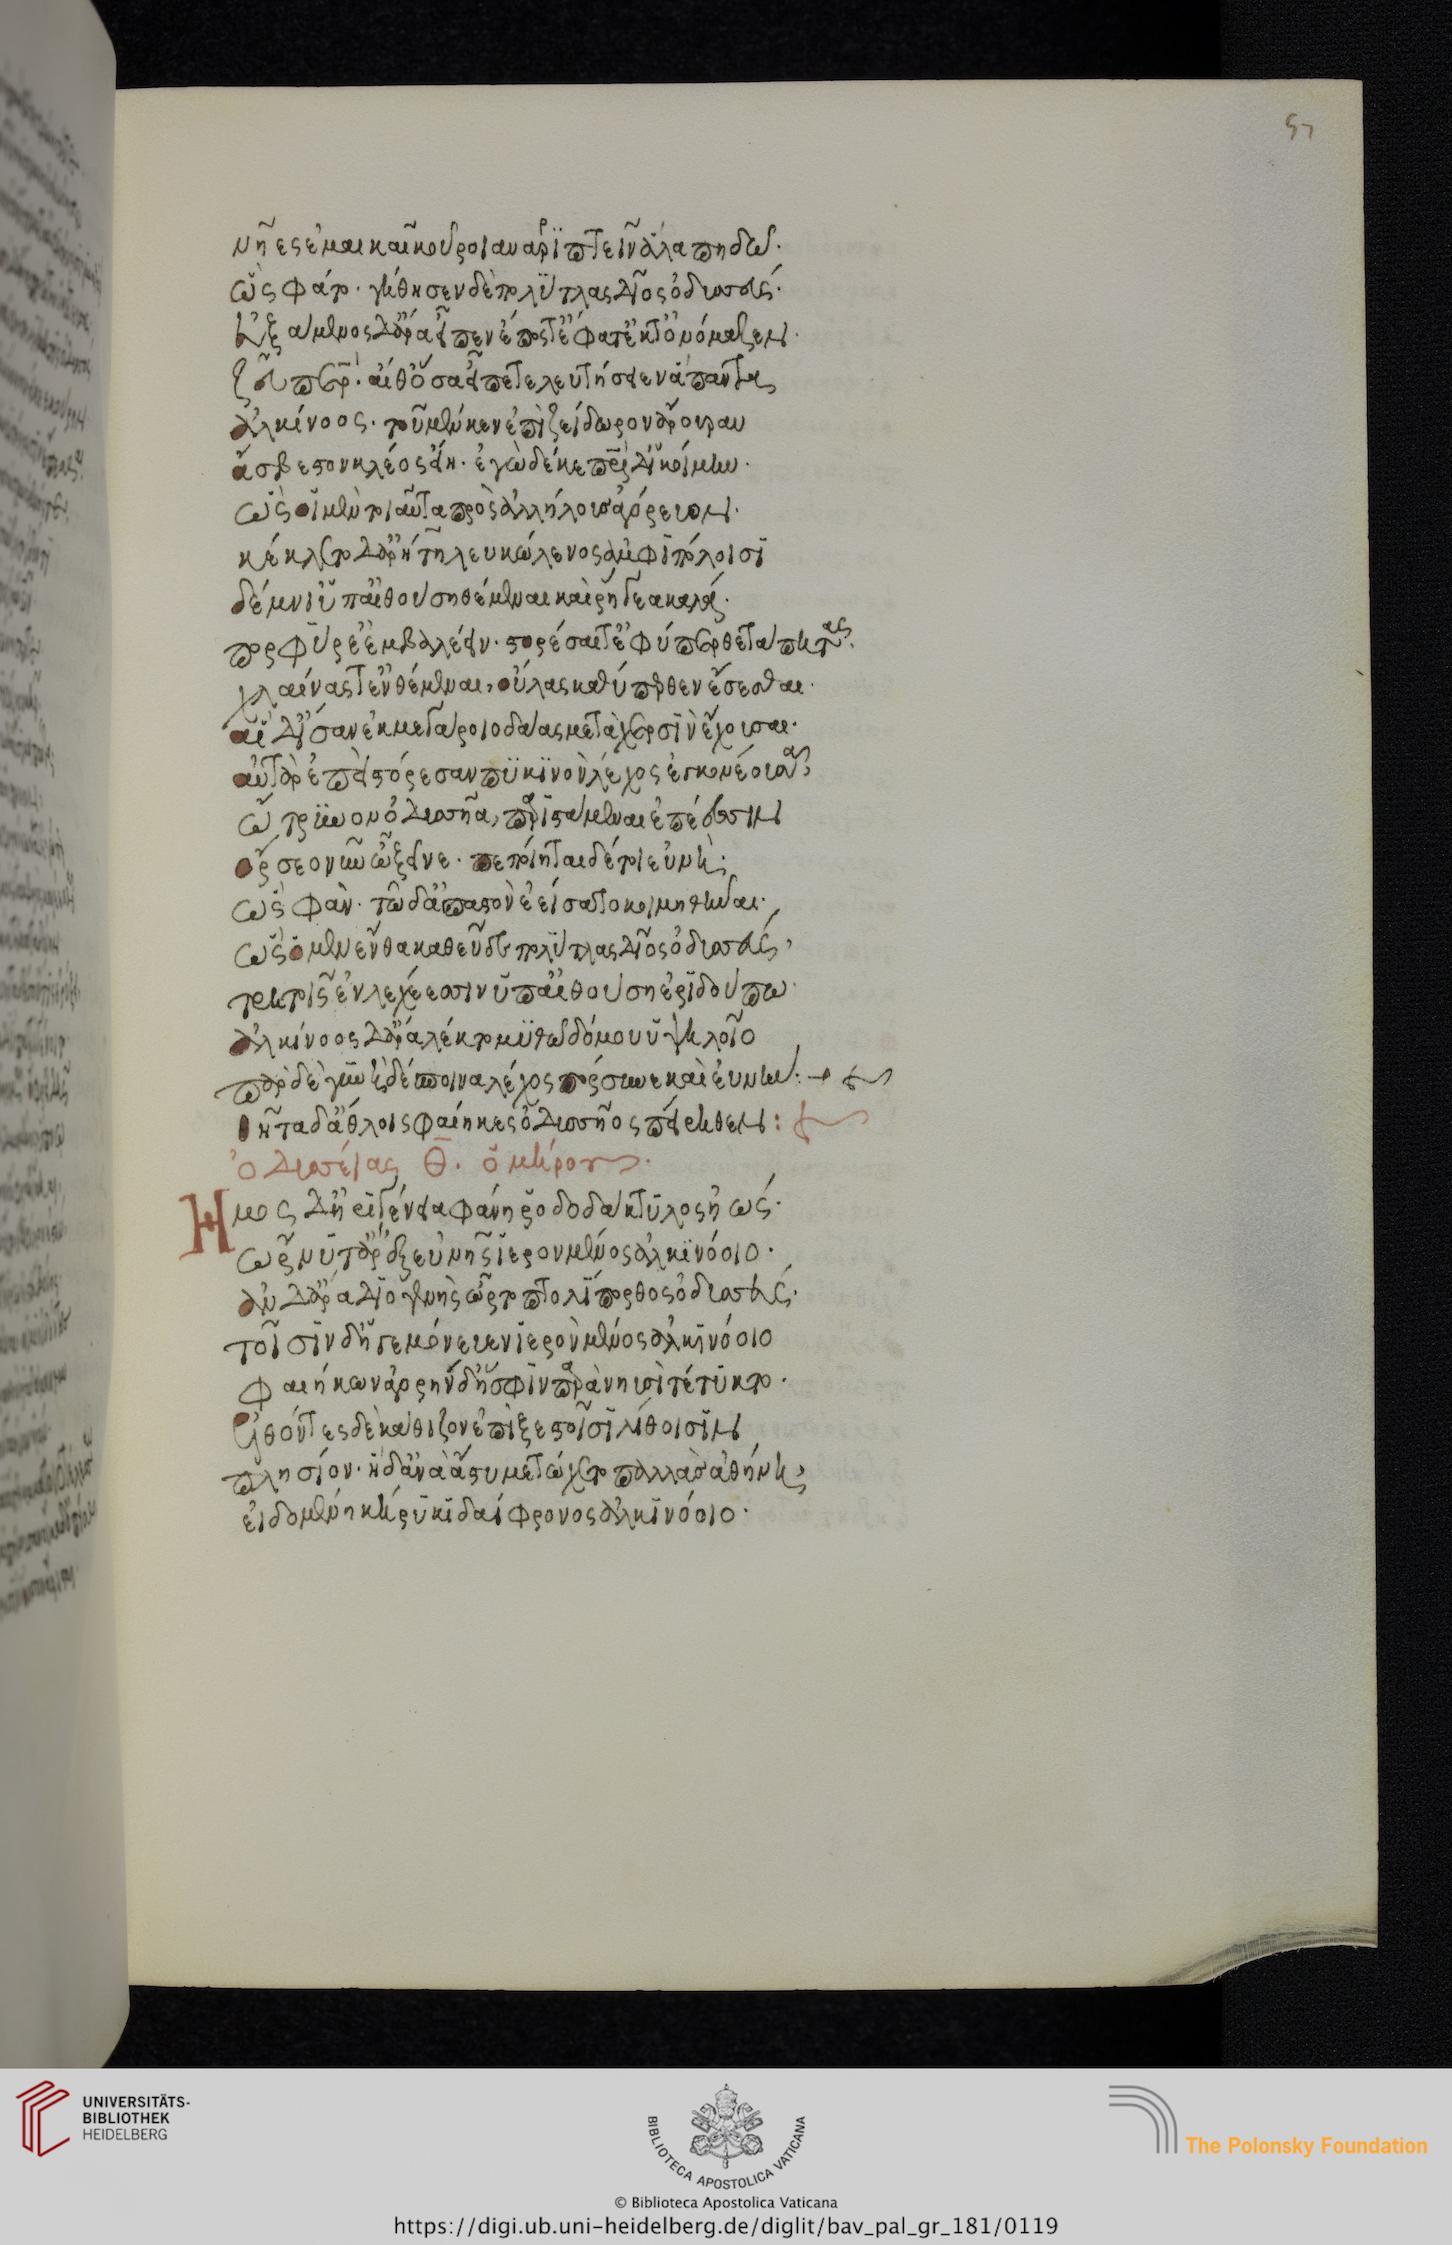 57
νῆες ἐμαὶ καὶ κοῦροι ἀναρρίπτειν ἅλα πηδῷ.
ὣς φάτο. γήθησεν δὲ πολύτλας δῖος ὀδυσσεύς.
εὐξάμενος δ' ἄρα εἶπεν ἔπος τ' ἔφατ' ἔκ τ' ὀνόμαζεν.
ζεῦ πάτερ. αἴθ' ὅσα εἶπε τελευτήσειεν ἅπαντα
ἀλκίνοος. τοῦ μέν κεν ἐπὶ ζείδωρον ἄρουραν
ἄσβεστον κλέος εἴη. ἐγὼ δέ κε πατρίδ' ἱκοίμην.
ὣς οἱ μὲν τοιαῦτα πρὸς ἀλλήλους ἀγόρευον.
κέκλετο δ' ἀρήτη λευκώλενος ἀμφιπόλοισι
δέμνι' ὑπ' αἰθούσῃ θέμεναι καὶ ῥήγεα καλά.
πορφύρε' ἐμβαλέειν. στορέσαι τ' ἐφύπερθε τάπητας.
χλαίνας τ' ἐνθέμεναι, οὔλας καθύπερθεν ἕσεσθαι.
αἱ δ' ἴσαν ἐκ μεγάροιο δάος μετὰ χερσὶν ἔχουσαι.
αὐτὰρ ἐπεὶ στόρεσαν πυκινὸν λέχος ἐγκονέουσαι,
ὤτρυνον ὀδυσῆα, παριστάμεναι ἐπέεσσιν
ὄρσεο κέων ὦ ξεῖνε. πεποίηται δέ τοι εὐνή.
ὣς φάν. τῷ δ' ἀσπαστὸν ἐείσατο κοιμηθῆναι.
ὣς ὁ μὲν ἔνθα καθεῦδε πολύτλας δῖος ὀδυσσεύς,
τρητοῖς ἐν λεχέεσσιν ὑπ' αἰθούσῃ ἐριδούπῳ.
ἀλκίνοος δ' ἄρα λέκτο μυχῷ δόμου ὑψηλοῖο
πὰρ δὲ γυνὴ δέσποινα λέχος πόρσυνε καὶ εὐνήν:
ἦτα δ' ἀέθλοις φαίηκες ὀδυσσῆος πειρήθεν:
ὀδυσσείας θ. ὁμήρου.
Ἦμος δ' ἠριγένεια φάνη ῥοδοδάκτυλος ἠώς.
ὤρνυτ' ἄρ' ἐξ εὐνῆς ἱερὸν μένος ἀλκινόοιο.
ἂν δ' ἄρα διογενὴς ὦρτο πτολίπορθος ὀδυσσεύς.
τοῖσιν δ' ἡγεμόνευεν ἱερὸν μένος ἀλκινόοιο
φαιήκων ἀγορὴν δ' ἥ σφιν παρὰ νηυσὶ τέτυκτο.
ἐλθόντες δὲ κάθιζον ἐπὶ ξεστοῖσι λίθοισιν
πλησίον. ἡ δ' ἀνὰ ἄστυ μετώχετο παλλὰς ἀθήνη,
εἰδομένη κήρυκι δαΐφρονος ἀλκινόοιο.
UNIVERSITÄTS-
BIBLIOTHEK
HEIDELBERG
BIBLIOTECA APOSTOLICA VATICANA
The Polonsky Foundation
© Biblioteca Apostolica Vaticana
https://digi.ub.uni-heidelberg.de/diglit/bav_pal_gr_181/0119